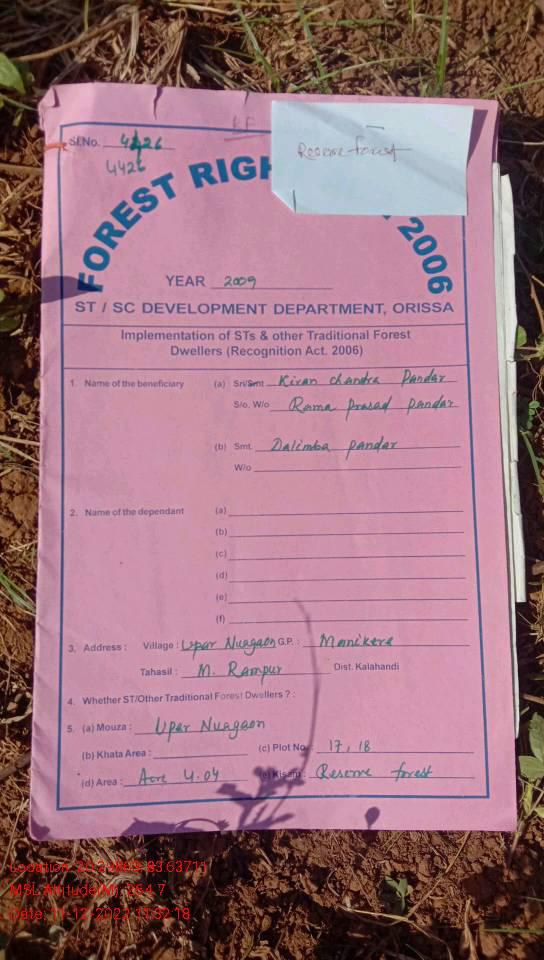 RF
Reserve forest
Sl.No. 4426
4426
FOREST RIGH 2006
YEAR 2009
ST / SC DEVELOPMENT DEPARTMENT, ORISSA
Implementation of STs & other Traditional Forest
Dwellers (Recognition Act. 2006)
1. Name of the beneficiary (a) Sri/Smt Kiran Chandra Pandar
S/o. W/o Rama Prasad Pandar
(b) Smt. Dalimba Pandar
W/o
2. Name of the dependant (a)
(b)
(c)
(d)
(e)
(f)
3. Address : Village : Upar Nuagaon G.P. : Manikera
Tahasil : M. Rampur Dist. Kalahandi
4. Whether ST/Other Traditional Forest Dwellers ? :
5. (a) Mouza : Upar Nuagaon
(b) Khata Area : (c) Plot No. : 17, 18
(d) Area : Acre 4.04 (e) Kisam : Reserve forest
MSL Altitude(M): 264.7
Date: 11-12-2022 11:32:18